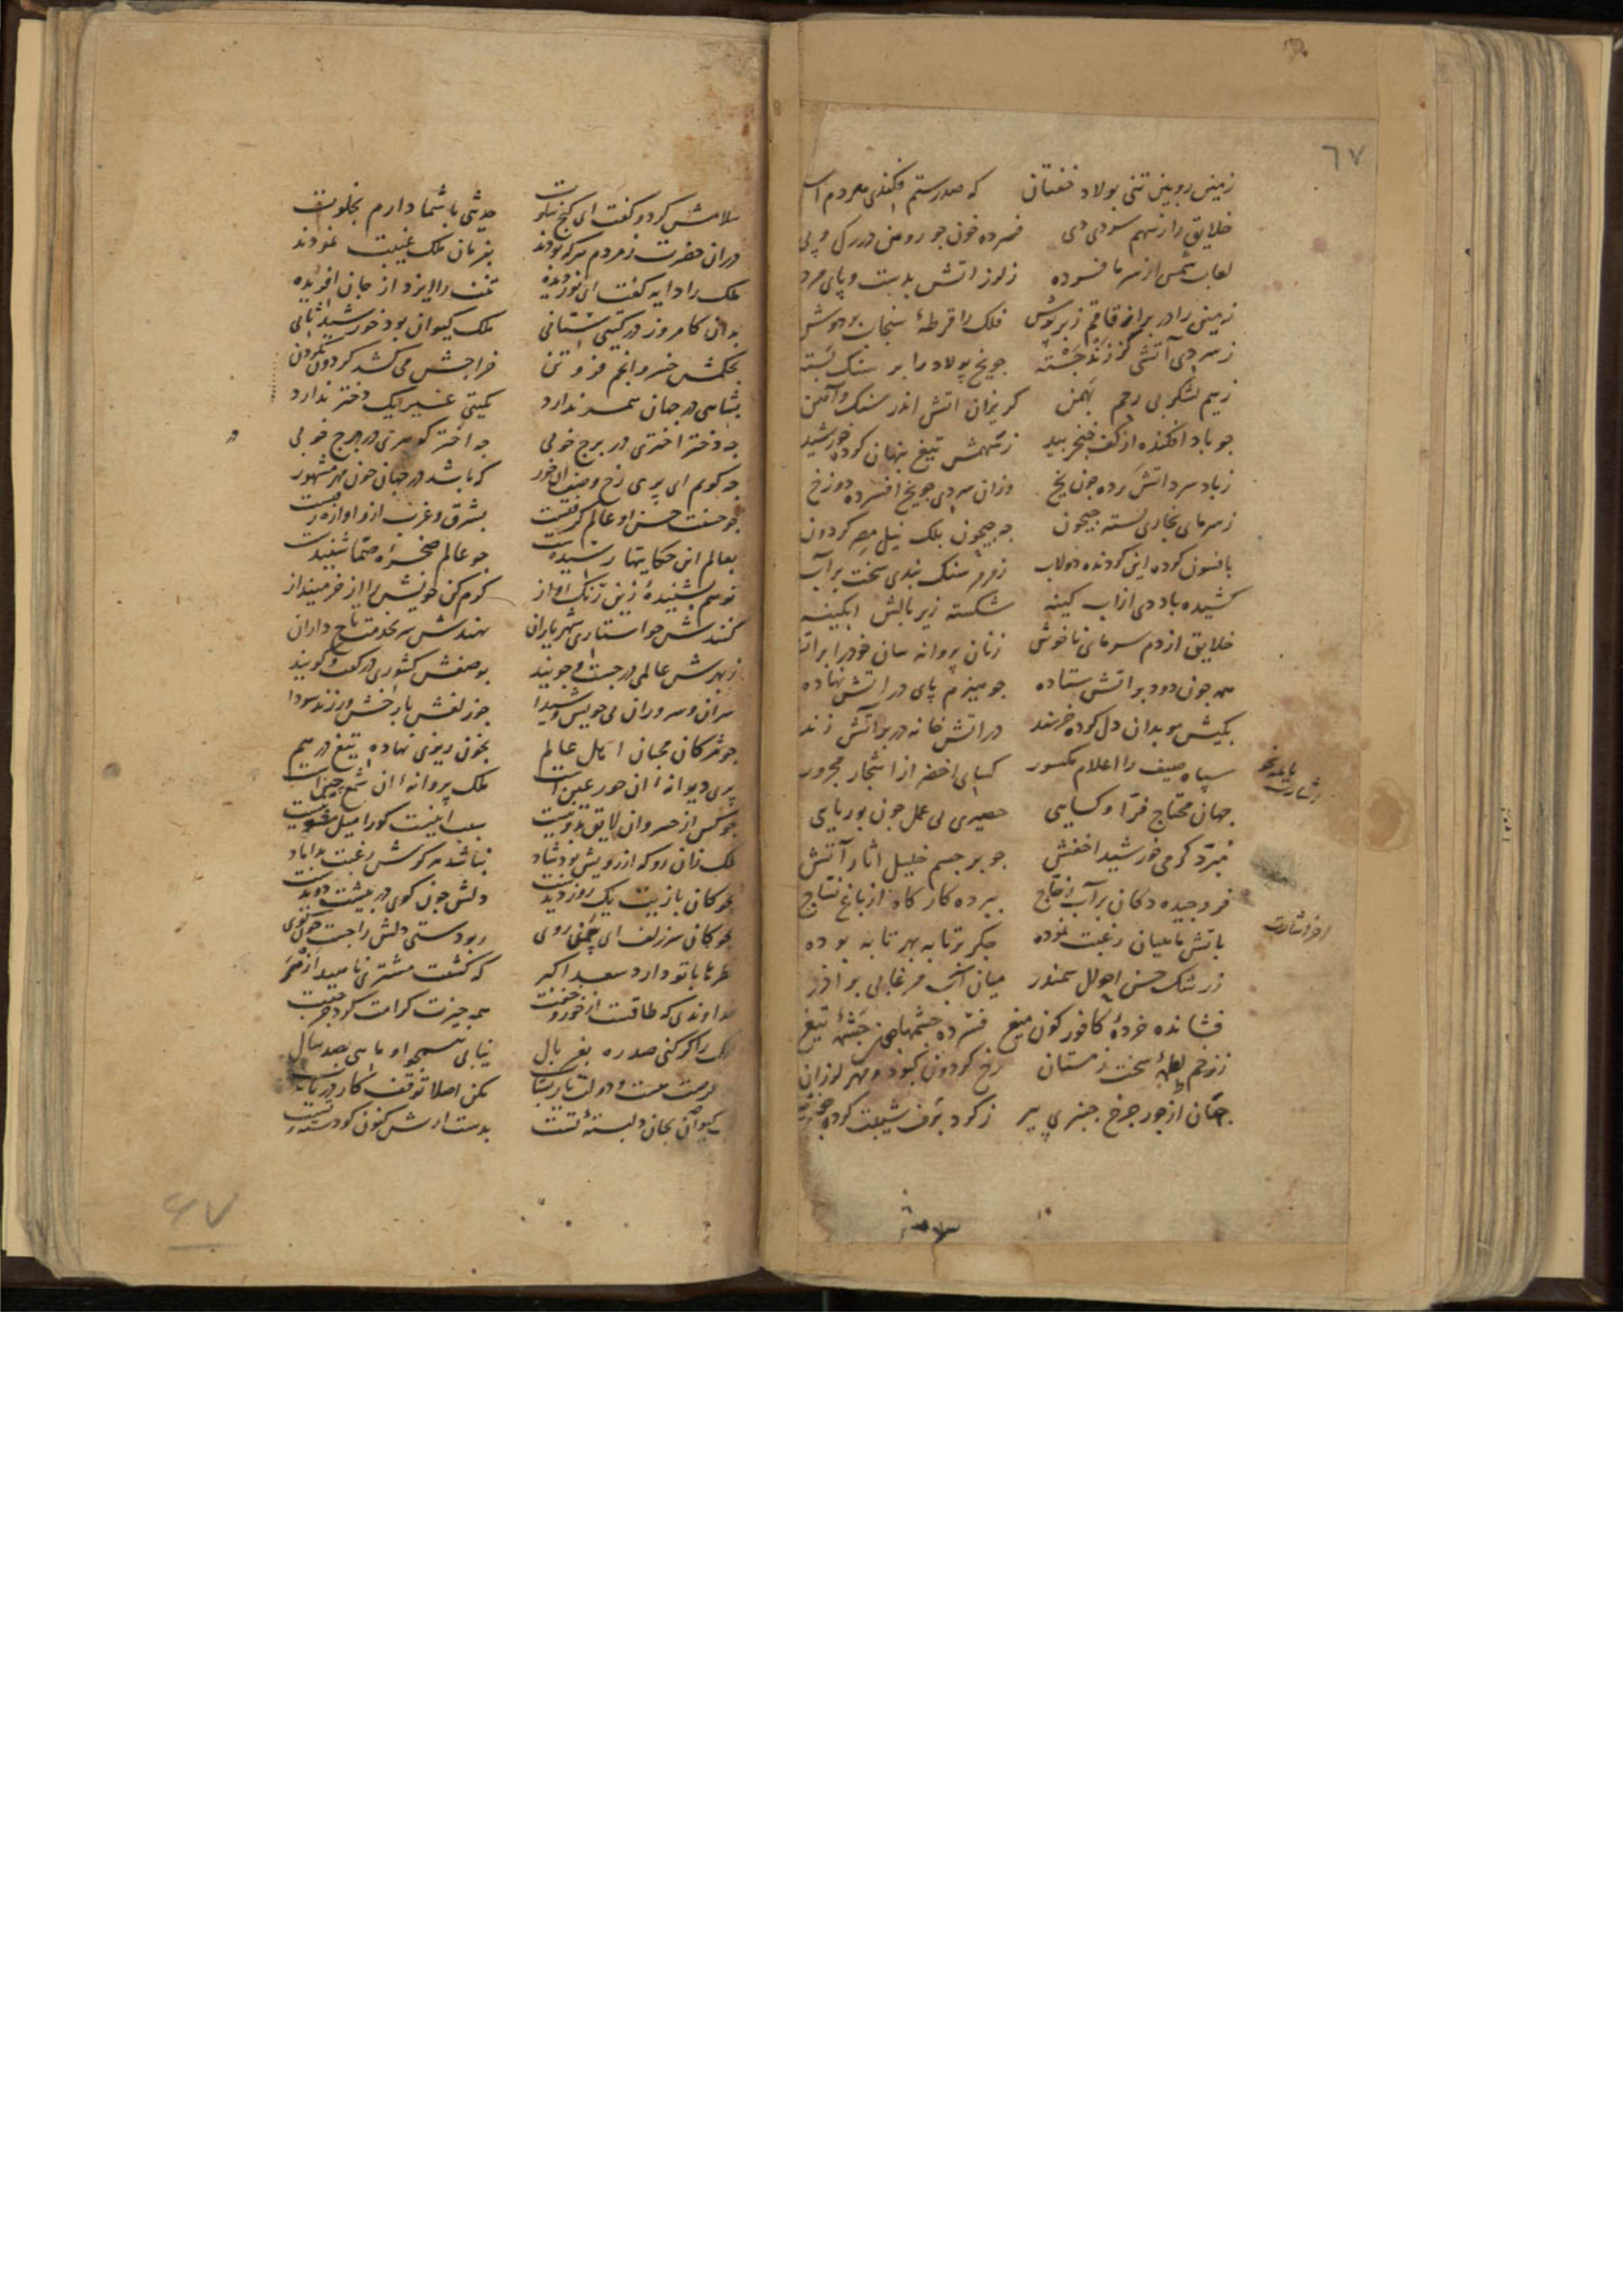 ٦٧
زمین رویین تنی پولاد خفتان که صد رستم فکندی هر دم
خلایق را ز سهم سردی دی فسرده خون چو روین در رک و پی
لعاب شمس از سرما فسرده ز لرز اتش بدست و پای مرده
زمین را در بر از قاقم زبرپوش فلک را قرطهٔ سنجاب بر دوش
ز سردی آتشی کز زند جسته چو یخ پولاد را بر سنک بسته
ز بیم لشکر بی رحم بهمن کریزان اتش اندر سنک و آهن
چو باد افکنده از کف خنجر بید ز سهمش تیغ پنهان کرده خورشید
ز باد سرد اتش مرده چون یخ وزان سردی چو یخ افسرده دوزخ
ز سرمای بخاری بسته جیحون چه جیحون بلک نیل مصر کردون
بافسون کرده این کردنده دولاب سنک بندی سخت بر آب
کشیده باد دی از اب کینه شکسته زیر بالش ابکینه
خلایق از دم سرمای ناخوش زنان پروانه سان خود را بر اتش
همه چون دود بر اتش ستاده چو هیزم پای در اتش نهاده
بکیش موبدان دل کرده خرسند در اتش خانه در بر آتش زند
سپاه صیف را اعلام مکسور کسای اخضر از اشجار مجرور
جهان محتاج فرّا و کسایی حصیری بی عمل چون بوریایی
مبرّد کرمی خورشید اخفش چو بر جسم خلیل اثار آتش
فروچیده دکان بر آب زجاج ببرده کار کاه از باغ نساج
باتش ماهیان رغبت نموده جکر بر تابه بهر تابه بوده
ز رشک حسن احوال سمندر میان آب مرغابی بر اذر
فشانده خردهٔ کافور کون میغ فسرده چشمهای چشمهٔ تیغ
ز زخم لطمهٔ سخت زمستان رخ کردون کبود و مهر لرزان
جهان از جور چرخ چنبری پیر ز کرد برف شیبت کرده
اشارت بائمه نحو
اخر اشارت
سلامش
سلامش کرد و کفت ای کنج خلوت حدیثی با شما دارم بخلوت
دران حضرت ز مردم هر که بودند بفرمان ملک غیبت نمودند
ملک را دایه کفت ای نور دیده تنت را ایزد از جان افریده
بدان کامروز در کیتی ستانی ملک کیوان بود خورشید ثانی
بحکمش خسرو انجم فروتن خراجش می کشد کردون بکردن
بشاهی در جهان همسر ندارد بکیتی غیر یک دختر ندارد
چه دختر اختری در برج خوبی چه اختر کوهری در درج خوبی
چه کویم ای پری رخ وصف ان حور که باشد در جهان چون مهر مشهور
چو حسنت حسن او عالم کرفتست بشرق و غرب ازو اوازه رفتست
بعالم این حکایتها رسیدست چو عالم صخرهٔ صمّا شنیدست
تو هم بشنیدهٔ زین رنک اواز کرم کن خویش را از خر مینداز
کنندش خواستاری شهریاران نهندش سر بخدمت تاج داران
ز بهرش عالمی در جست و جویند بوصفش کشوری در کفت و کویند
سران و سروران می جویس و شیدا چو زلفش با رخش ورزند سودا
چو مژکان محبان اهل عالم بخون ریزی نهاده تیغ در هم
پری دیوانهٔ ان حور عین است ملک پروانهٔ ان شمع چین است
چو کس از خسروان لایق بدو نیست سبب اینست کو را میل شو نیست
ملک زان رو که از رویش بود شاد نباشد هرکزش رغبت بداماد
چوکان بازیت یک روز دیدست دلش چون کوی در پیشت دویدست
بچوکان سر زلف ای چمنی روی ربودستی دلش را جست چون کوی
طربها با تو دارد سعد اکبر که کشت مشتری ناهید ازهر
خداوندی که طاقت از خور و جفتت همه چیزت کرامت کرد جز جفت
فلک را کر کنی صد ره بغربال نیابی همچو او ماهی بصد سال
فرصت هست و دولت یار بشتاب مکن اصلا توقف کار دریاب
کیوان بجان دلبستهٔ تست بدست ارش کنون کو دستهٔ تست
٦٧